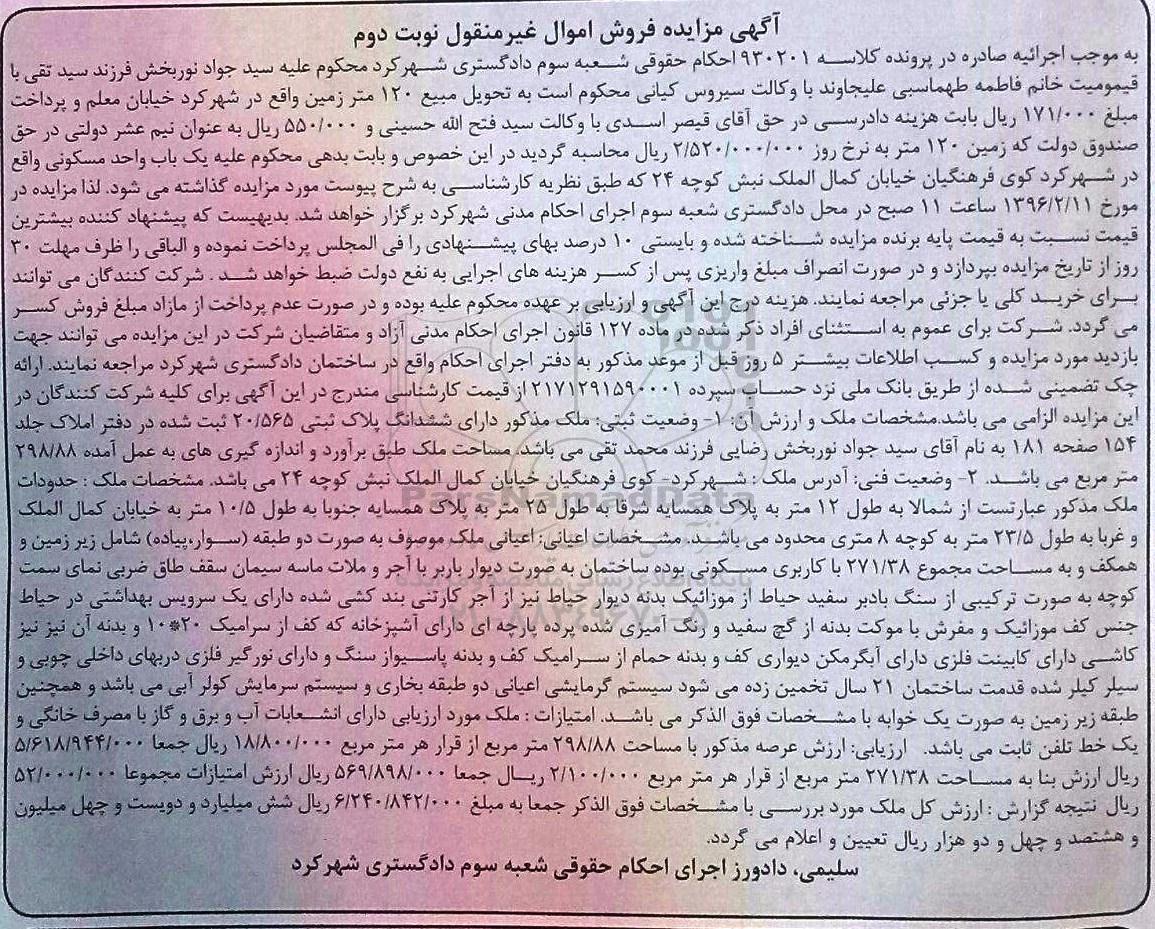 آگهی مزایده فروش اموال غیرمنقول نوبت دوم
به موجب اجرائیه صادره در پرونده کلاسه ۹۳۰۲۰۱ احکام حقوقی شعبه سوم دادگستری شهرکرد محکوم علیه سید جواد نوربخش فرزند سید تقی با
قیمومیت خانم فاطمه طهماسبی علیجاوند با وکالت سیروس کیانی محکوم است به تحویل مبیع ۱۲۰ متر زمین واقع در شهرکرد خیابان معلم و پرداخت
مبلغ ۱۷۱/۰۰۰ ریال بابت هزینه دادرسی در حق آقای قیصر اسدی با وکالت سید فتح الله حسینی و ۵۵۰/۰۰۰ ریال به عنوان نیم عشر دولتی در حق
صندوق دولت که زمین ۱۲۰ متر به نرخ روز ۲/۵۲۰/۰۰۰/۰۰۰ ریال محاسبه گردید در این خصوص و بابت بدهی محکوم علیه یک باب واحد مسکونی واقع
در شهرکرد کوی فرهنگیان خیابان کمال الملک نبش کوچه ۲۴ که طبق نظریه کارشناسی به شرح پیوست مورد مزایده گذاشته می شود. لذا مزایده در
مورخ ۱۳۹۶/۲/۱۱ ساعت ۱۱ صبح در محل دادگستری شعبه سوم اجرای احکام مدنی شهرکرد برگزار خواهد شد. بدیهیست که پیشنهاد کننده بیشترین
قیمت نسبت به قیمت پایه برنده مزایده شناخته شده و بایستی ۱۰ درصد بهای پیشنهادی را فی المجلس پرداخت نموده و الباقی را ظرف مهلت ۳۰
روز از تاریخ مزایده بپردازد و در صورت انصراف مبلغ واریزی پس از کسر هزینه های اجرایی به نفع دولت ضبط خواهد شد . شرکت کنندگان می توانند
برای خرید کلی یا جزئی مراجعه نمایند. هزینه درج این آگهی و ارزیابی بر عهده محکوم علیه بوده و در صورت عدم پرداخت از مازاد مبلغ فروش کسر
می گردد. شرکت برای عموم به استثنای افراد ذکر شده در ماده ۱۲۷ قانون اجرای احکام مدنی آزاد و متقاضیان شرکت در این مزایده می توانند جهت
بازدید مورد مزایده و کسب اطلاعات بیشتر ۵ روز قبل از موعد مذکور به دفتر اجرای احکام واقع در ساختمان دادگستری شهرکرد مراجعه نمایند. ارائه
چک تضمینی شده از طریق بانک ملی نزد حساب سپرده ۲۱۷۱۲۹۱۵۹۰۰۰۱ از قیمت کارشناسی مندرج در این آگهی برای کلیه شرکت کنندگان در
این مزایده الزامی می باشد.مشخصات ملک و ارزش آن: ۱- وضعیت ثبتی: ملک مذکور دارای ششدانگ پلاک ثبتی ۲۰/۵۶۵ ثبت شده در دفتر املاک جلد
۱۵۴ صفحه ۱۸۱ به نام آقای سید جواد نوربخش رضایی فرزند محمد تقی می باشد. مساحت ملک طبق برآورد و اندازه گیری های به عمل آمده ۲۹۸/۸۸
متر مربع می باشد. ۲- وضعیت فنی: آدرس ملک : شهرکرد- کوی فرهنگیان خیابان کمال الملک نبش کوچه ۲۴ می باشد. مشخصات ملک : حدودات
ملک مذکور عبارتست از شمالا به طول ۱۲ متر به پلاک همسایه شرقا به طول ۲۵ متر به پلاک همسایه جنوبا به طول ۱۰/۵ متر به خیابان کمال الملک
و غربا به طول ۲۳/۵ متر به کوچه ۸ متری محدود می باشد. مشخصات اعیانی: اعیانی ملک موصوف به صورت دو طبقه (سوار،پیاده) شامل زیر زمین و
همکف و به مساحت مجموع ۲۷۱/۳۸ با کاربری مسکونی بوده ساختمان به صورت دیوار باربر با آجر و ملات ماسه سیمان سقف طاق ضربی نمای سمت
کوچه به صورت ترکیبی از سنگ بادبر سفید حیاط از موزائیک بدنه دیوار حیاط نیز از آجر کارتنی بند کشی شده دارای یک سرویس بهداشتی در حیاط
جنس کف موزائیک و مفرش با موکت بدنه از گچ سفید و رنگ آمیزی شده پرده پارچه ای دارای آشپزخانه که کف از سرامیک ۲۰*۱۰ و بدنه آن نیز نیز
کاشی دارای کابینت فلزی دارای آبگرمکن دیواری کف و بدنه حمام از سرامیک کف و بدنه پاسیواز سنگ و دارای نورگیر فلزی دربهای داخلی چوبی و
سیلر کیلر شده قدمت ساختمان ۲۱ سال تخمین زده می شود سیستم گرمایشی اعیانی دو طبقه بخاری و سیستم سرمایش کولر آبی می باشد و همچنین
طبقه زیر زمین به صورت یک خوابه با مشخصات فوق الذکر می باشد. امتیازات : ملک مورد ارزیابی دارای انشعابات آب و برق و گاز با مصرف خانگی و
یک خط تلفن ثابت می باشد. ارزیابی: ارزش عرصه مذکور با مساحت ۲۹۸/۸۸ متر مربع از قرار هر متر مربع ۱۸/۸۰۰/۰۰۰ ریال جمعا ۵/۶۱۸/۹۴۴/۰۰۰
ریال ارزش بنا به مساحت ۲۷۱/۳۸ متر مربع از قرار هر متر مربع ۲/۱۰۰/۰۰۰ ریال جمعا ۵۶۹/۸۹۸/۰۰۰ ریال ارزش امتیازات مجموعا ۵۲/۰۰۰/۰۰۰
ریال نتیجه گزارش : ارزش کل ملک مورد بررسی با مشخصات فوق الذکر جمعا به مبلغ ۶/۲۴۰/۸۴۲/۰۰۰ ریال شش میلیارد و دویست و چهل میلیون
و هشتصد و چهل و دو هزار ریال تعیین و اعلام می گردد.
سلیمی، دادورز اجرای احکام حقوقی شعبه سوم دادگستری شهرکرد
ParsNamadData